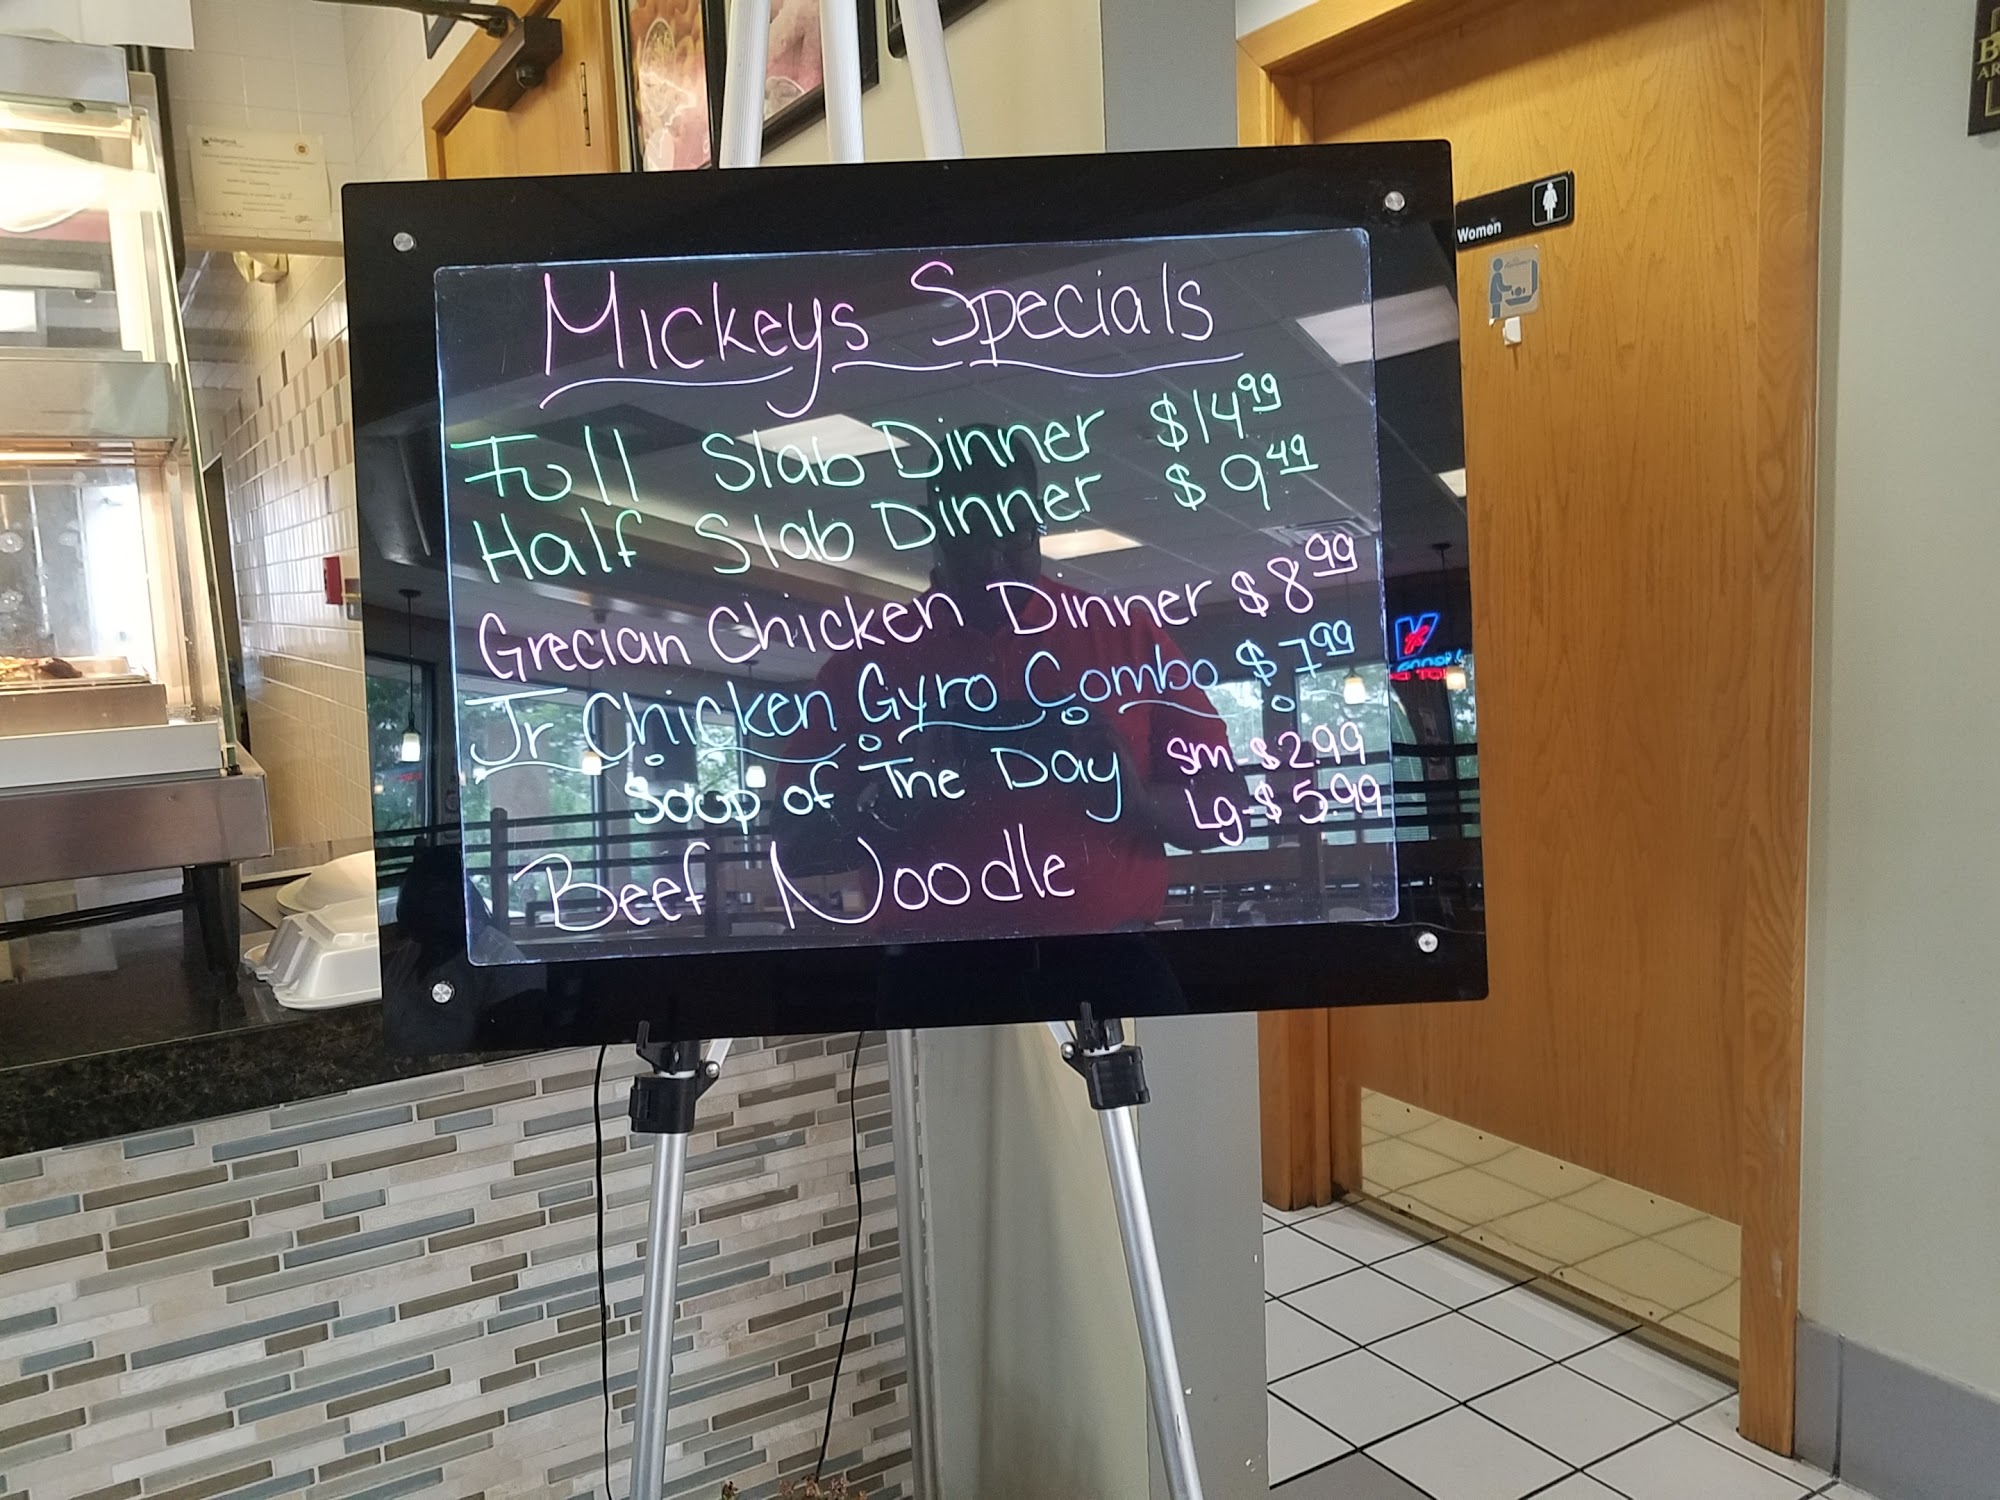 Mickeys Specials
Full Slab Dinner $14.99
Half Slab Dinner $9.49
Grecian Chicken Dinner $8.99
Jr Chicken Gyro Combo $7.99
Soup of The Day Sm-$2.99
Lg-$5.99
Beef Noodle
Women